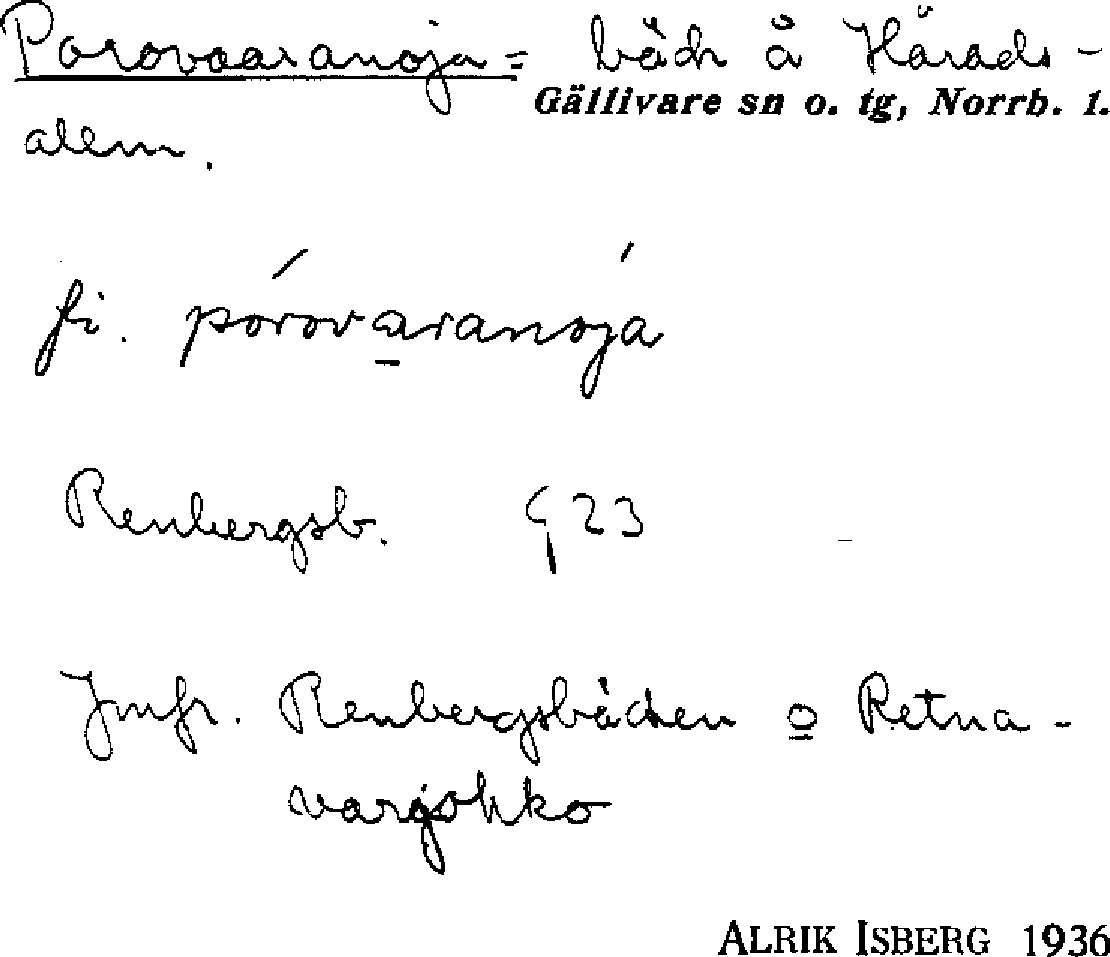 Porovaaranoja = bäck å Härads-
Gällivare sn o. tg, Norrb. l.
alem.
fi. pórovaranojá
Renbergsb. 923
Jmfr. Renbergsbäcken o Retna-
varjohko
ALRIK ISBERG 1936